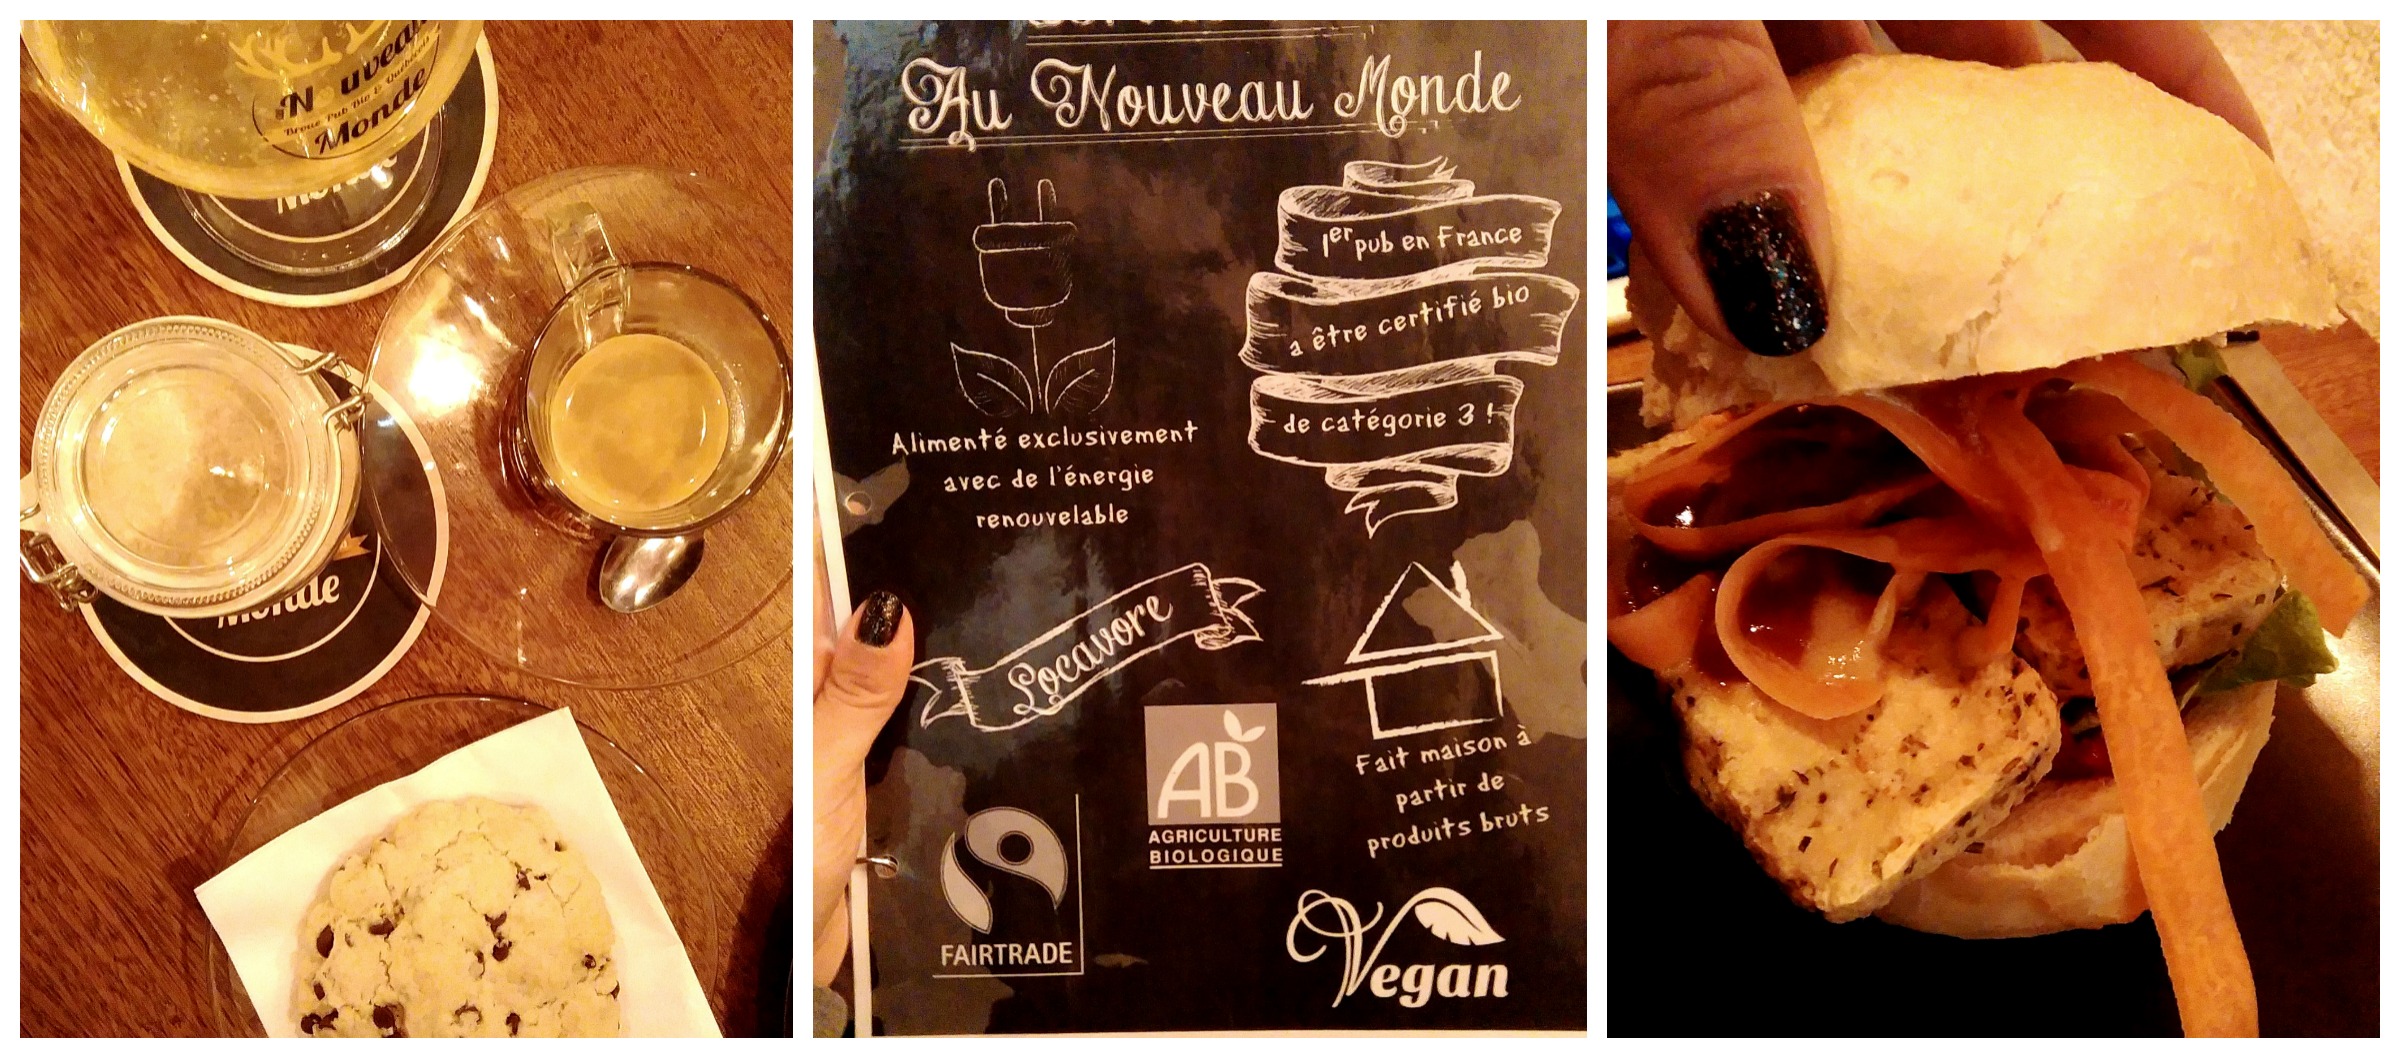 Nouveau
Broue Pub Bio & Québécois
Monde
Monde
Au Nouveau Monde
1er pub en France
a être certifié bio
de catégorie 3 !
Alimenté exclusivement
avec de l'énergie
renouvelable
Locavore
Fait maison à
partir de
produits bruts
AB
AGRICULTURE
BIOLOGIQUE
FAIRTRADE
Vegan